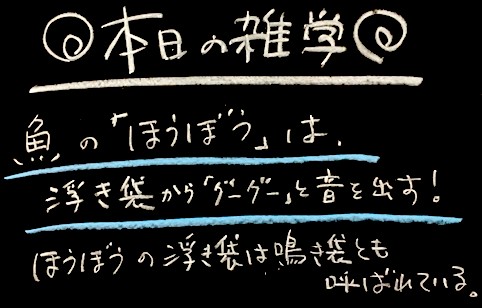 本日の雑学
魚の「ほうぼう」は、
浮き袋から「グーグー」と音を出す!
ほうぼうの浮き袋は鳴き袋とも
呼ばれている。